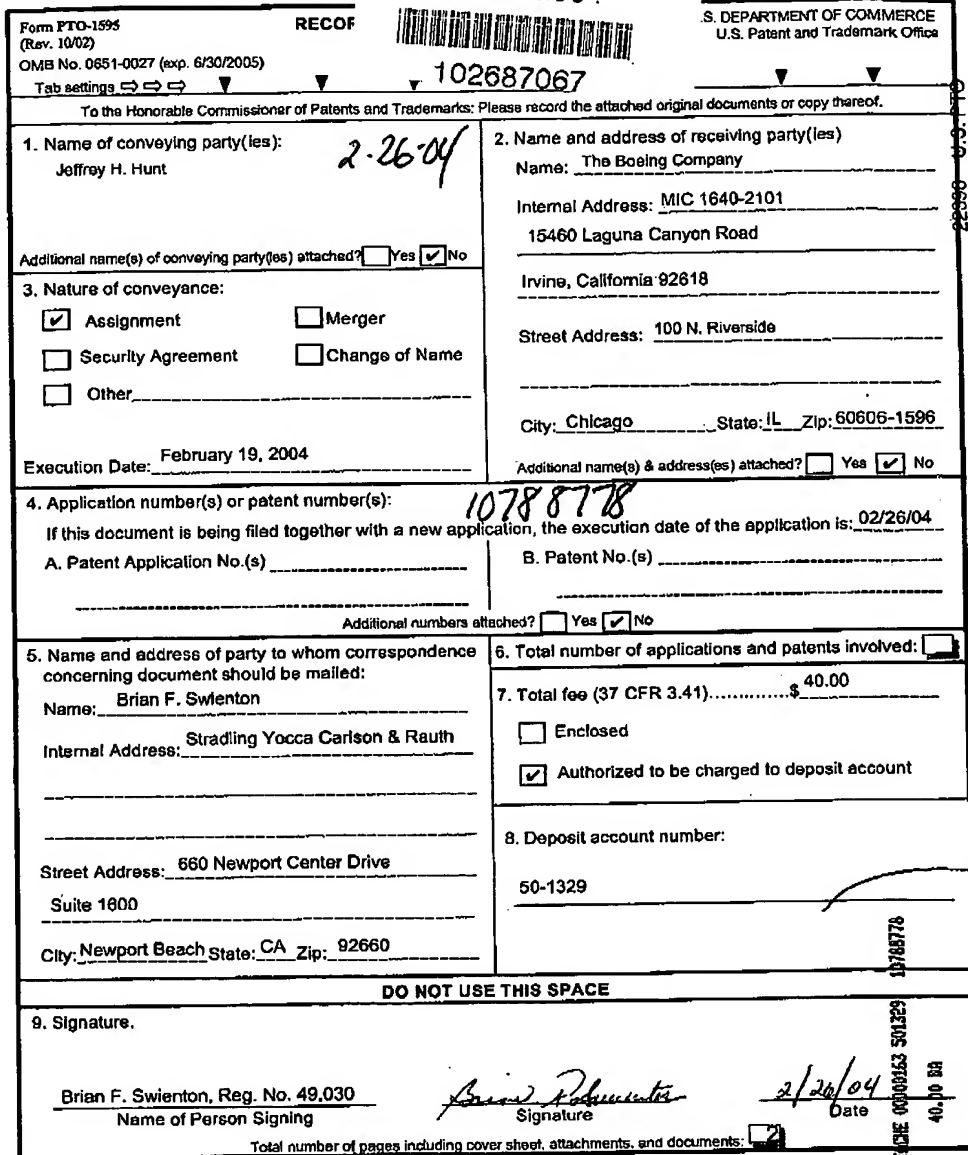 Form PTO-1595
(Rev. 10/02)
OMB No. 0651-0027 (exp. 6/30/2005)
Tab settings ⇨ ⇨ ⇨ ▼ ▼ ▼ ▼ ▼
RECOR
102687067
.S. DEPARTMENT OF COMMERCE
U.S. Patent and Trademark Office
To the Honorable Commissioner of Patents and Trademarks: Please record the attached original documents or copy thereof.
1. Name of conveying party(ies):
Jeffrey H. Hunt
2-26-04
Additional name(s) of conveying party(ies) attached? Yes ✔ No
2. Name and address of receiving party(ies)
Name: The Boeing Company
Internal Address: M/C 1640-2101
15460 Laguna Canyon Road
Irvine, California 92618
Street Address: 100 N. Riverside
City: Chicago State: IL Zip: 60606-1596
Additional name(s) & address(es) attached? Yes ✔ No
3. Nature of conveyance:
✔ Assignment Merger
Security Agreement Change of Name
Other
Execution Date: February 19, 2004
4. Application number(s) or patent number(s):
10788778
If this document is being filed together with a new application, the execution date of the application is: 02/26/04
A. Patent Application No.(s)
B. Patent No.(s)
Additional numbers attached? Yes ✔ No
5. Name and address of party to whom correspondence
concerning document should be mailed:
Name: Brian F. Swienton
Internal Address: Stradling Yocca Carlson & Rauth
Street Address: 660 Newport Center Drive
Suite 1600
City: Newport Beach State: CA Zip: 92660
6. Total number of applications and patents involved:
7. Total fee (37 CFR 3.41)..............$ 40.00
Enclosed
✔ Authorized to be charged to deposit account
8. Deposit account number:
50-1329
DO NOT USE THIS SPACE
9. Signature.
Brian F. Swienton, Reg. No. 49,030
Name of Person Signing
Signature
2/26/04
Date
Total number of pages including cover sheet, attachments, and documents: 2
10788778
00000163 501329
40.00